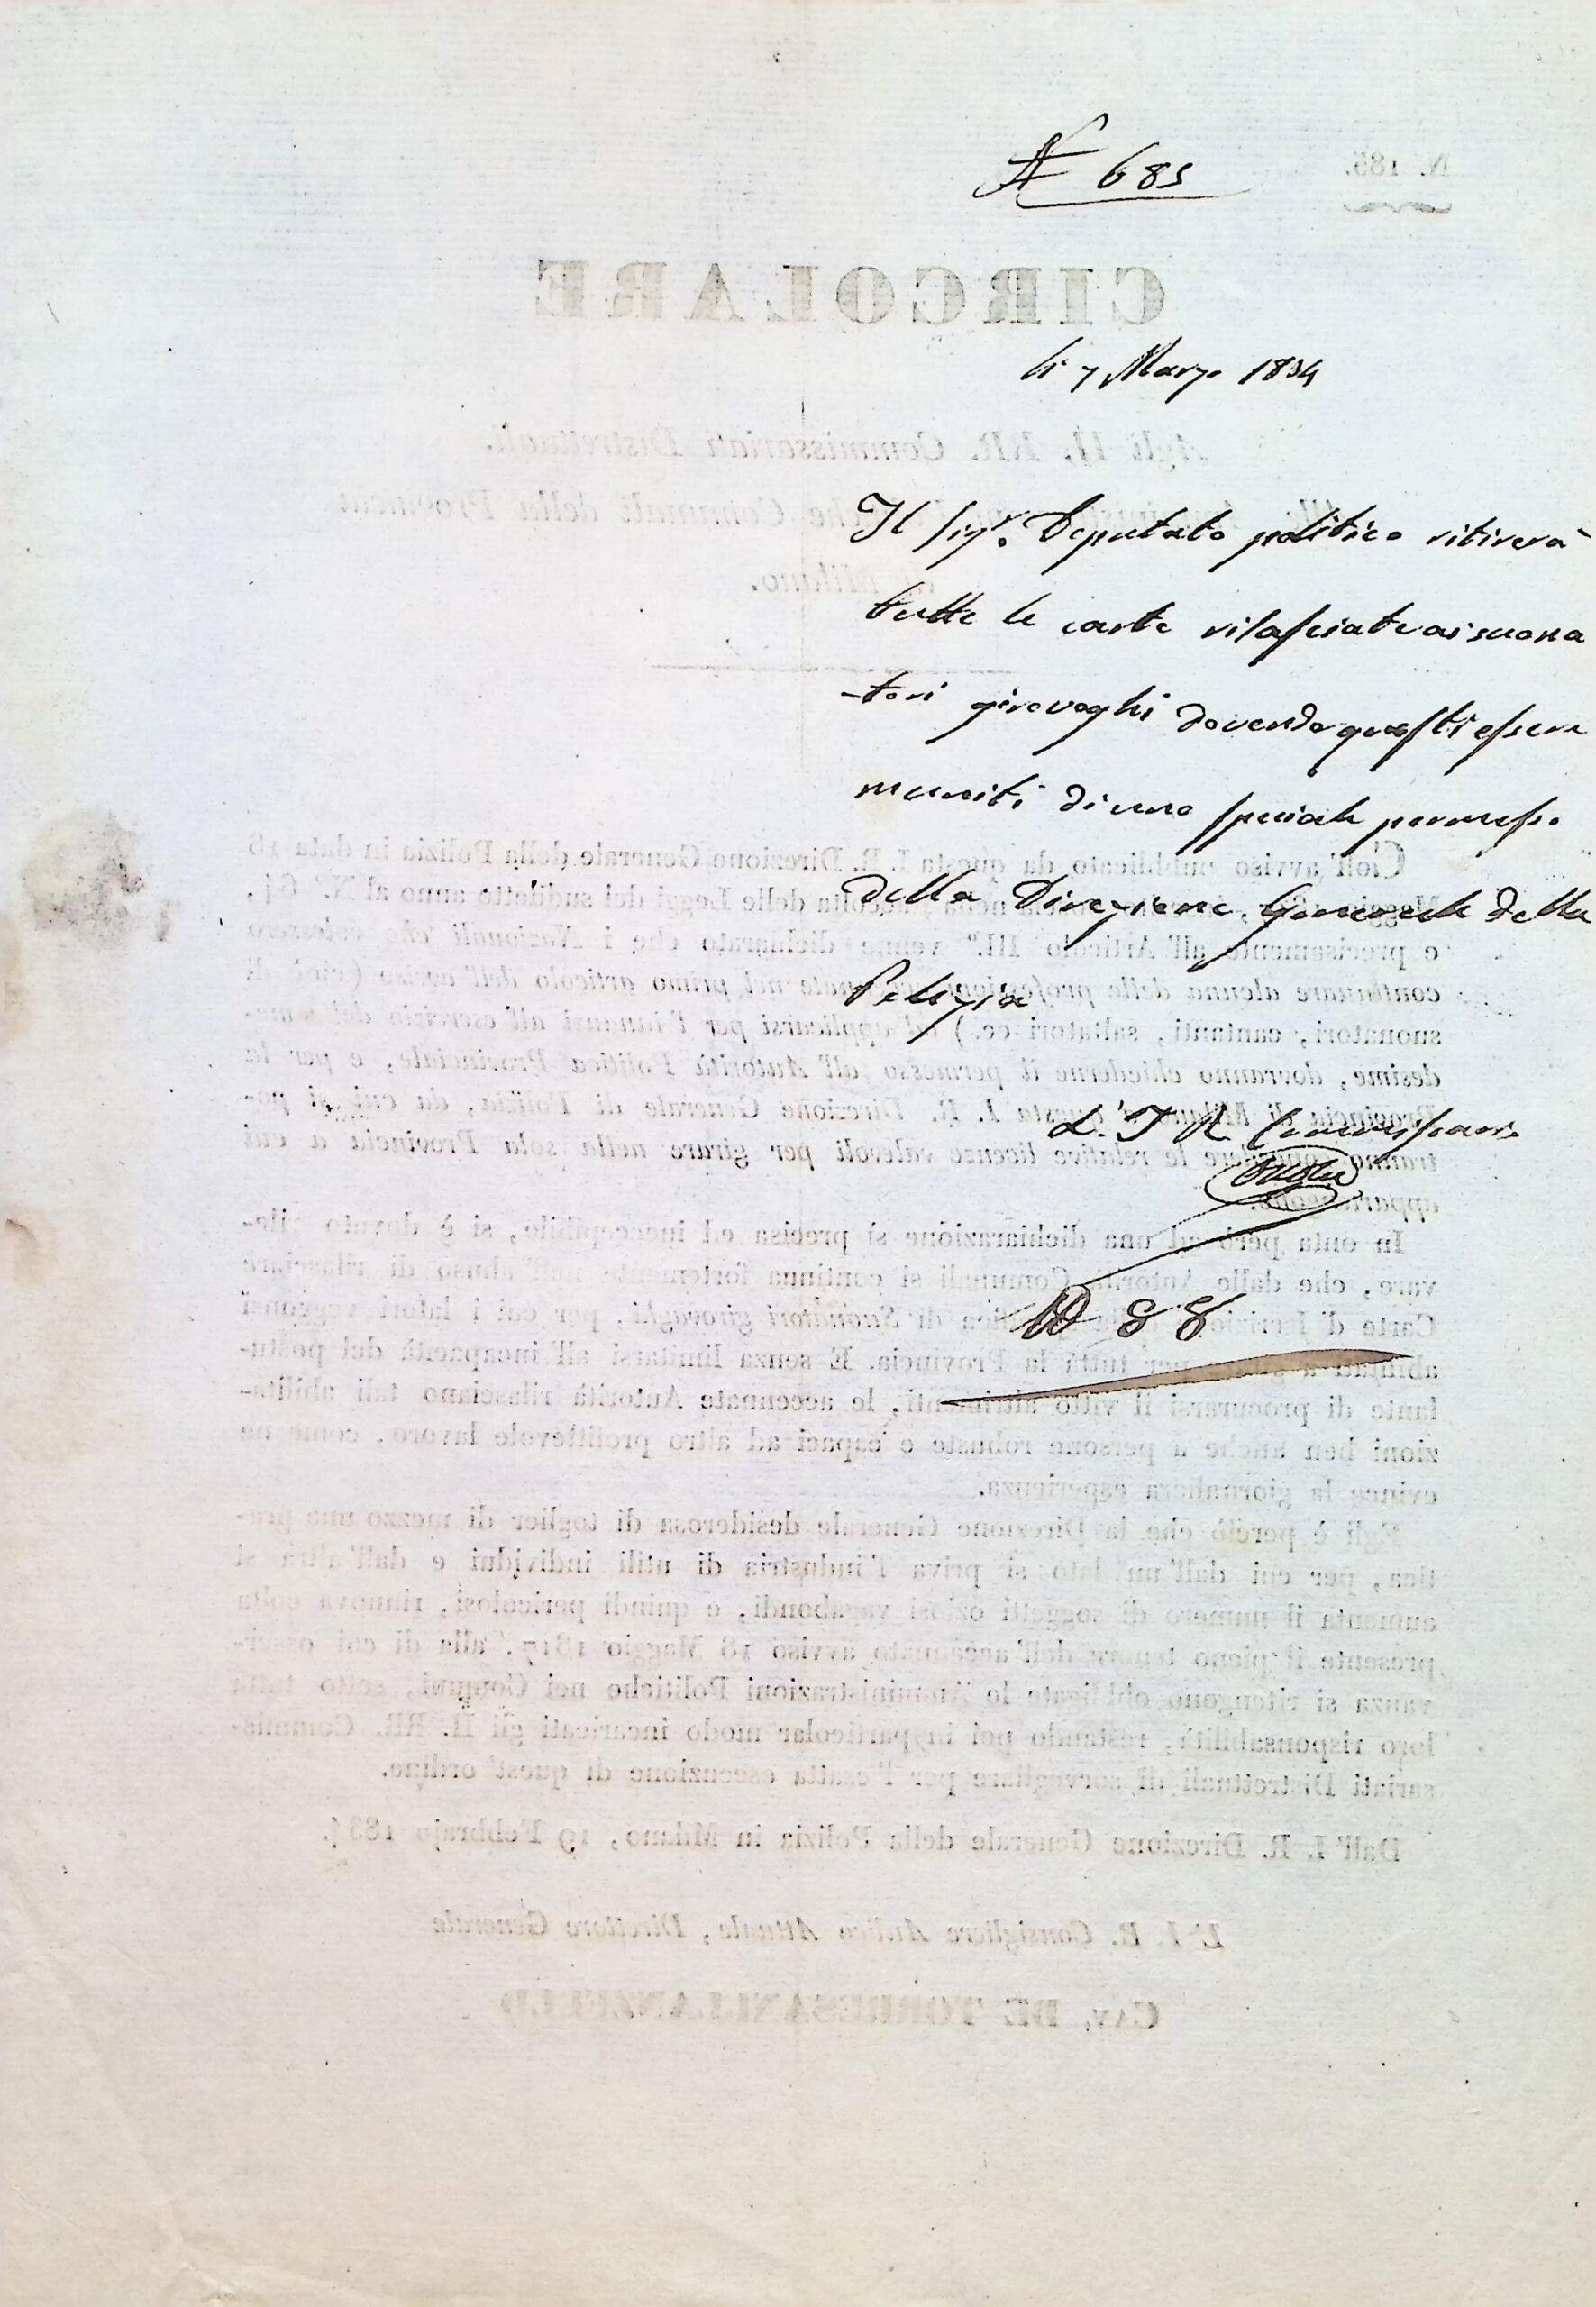 N 685
N. 185.
CIRCOLARE
li 7 Marzo 1834
Agli II. RR. Commissariati Distrettuali.
Comunali della Provincia
di Milano.
Il Sigr. Deputato politico ritirerà
tutte le carte rilasciate ai suona
-tori girovaghi dovendo questi essere
muniti di uno speciale permesso
della Direzione Generale della
Polizia
L. I R. Commissario
N 88
Coll'avviso pubblicato da questa I. R. Direzione Generale della Polizia in data 18
Maggio delle Leggi del suddetto anno al N.° 64,
e precisamente all'Articolo III.° venne dichiarato che i Nazionali che volessero
continuare alcuna delle professioni nel primo articolo dell'avviso (cioè di
suonatori, cantanti, saltatori ec.) od applicarsi per l'innanzi all'esercizio delle me-
desime, dovranno chiederne il permesso all'Autorità Politica Provinciale, e per la
Provincia di Milano a questa I. R. Direzione Generale di Polizia, da cui si po-
tranno le relative licenze valevoli per girare nella sola Provincia a cui
appartengono.
In onta però ad una dichiarazione sì precisa ed ineccepibile, si è dovuto rile-
vare, che dalle Autorità Comunali si continua fortemente nell'abuso di rilasciare
Carte d'Iscrizione di Suonatori girovaghi, per cui i latori veggonsi
abilitati a per tutta la Provincia. E senza limitarsi all'incapacità del postu-
lante di procurarsi il vitto altrimenti, le accennate Autorità rilasciano tali abilita-
zioni ben anche a persone robuste e capaci ad altro profittevole lavoro, come ne
evince la giornaliera esperienza.
Egli è perciò che la Direzione Generale desiderosa di toglier di mezzo una pra-
tica, per cui dall'un lato si priva l'industria di utili individui e dall'altra si
aumenta il numero di soggetti oziosi vagabondi, e quindi pericolosi, rinnova colla
presente il pieno tenore dell'accennato avviso 18 Maggio 1817, alla di cui osser-
vanza si ritengono obbligate le Amministrazioni Politiche nei Comuni, sotto tutta
loro risponsabilità, restando poi in particolar modo incaricati gli II. RR. Commis-
sariati Distrettuali di sorvegliare per l'esatta esecuzione di quest'ordine.
Dall'I. R. Direzione Generale della Polizia in Milano, 19 Febbrajo 1834.
L'I. R. Consigliere Aulico Attuale, Direttore Generale
Cav. DE TORRESANI LANZFELD